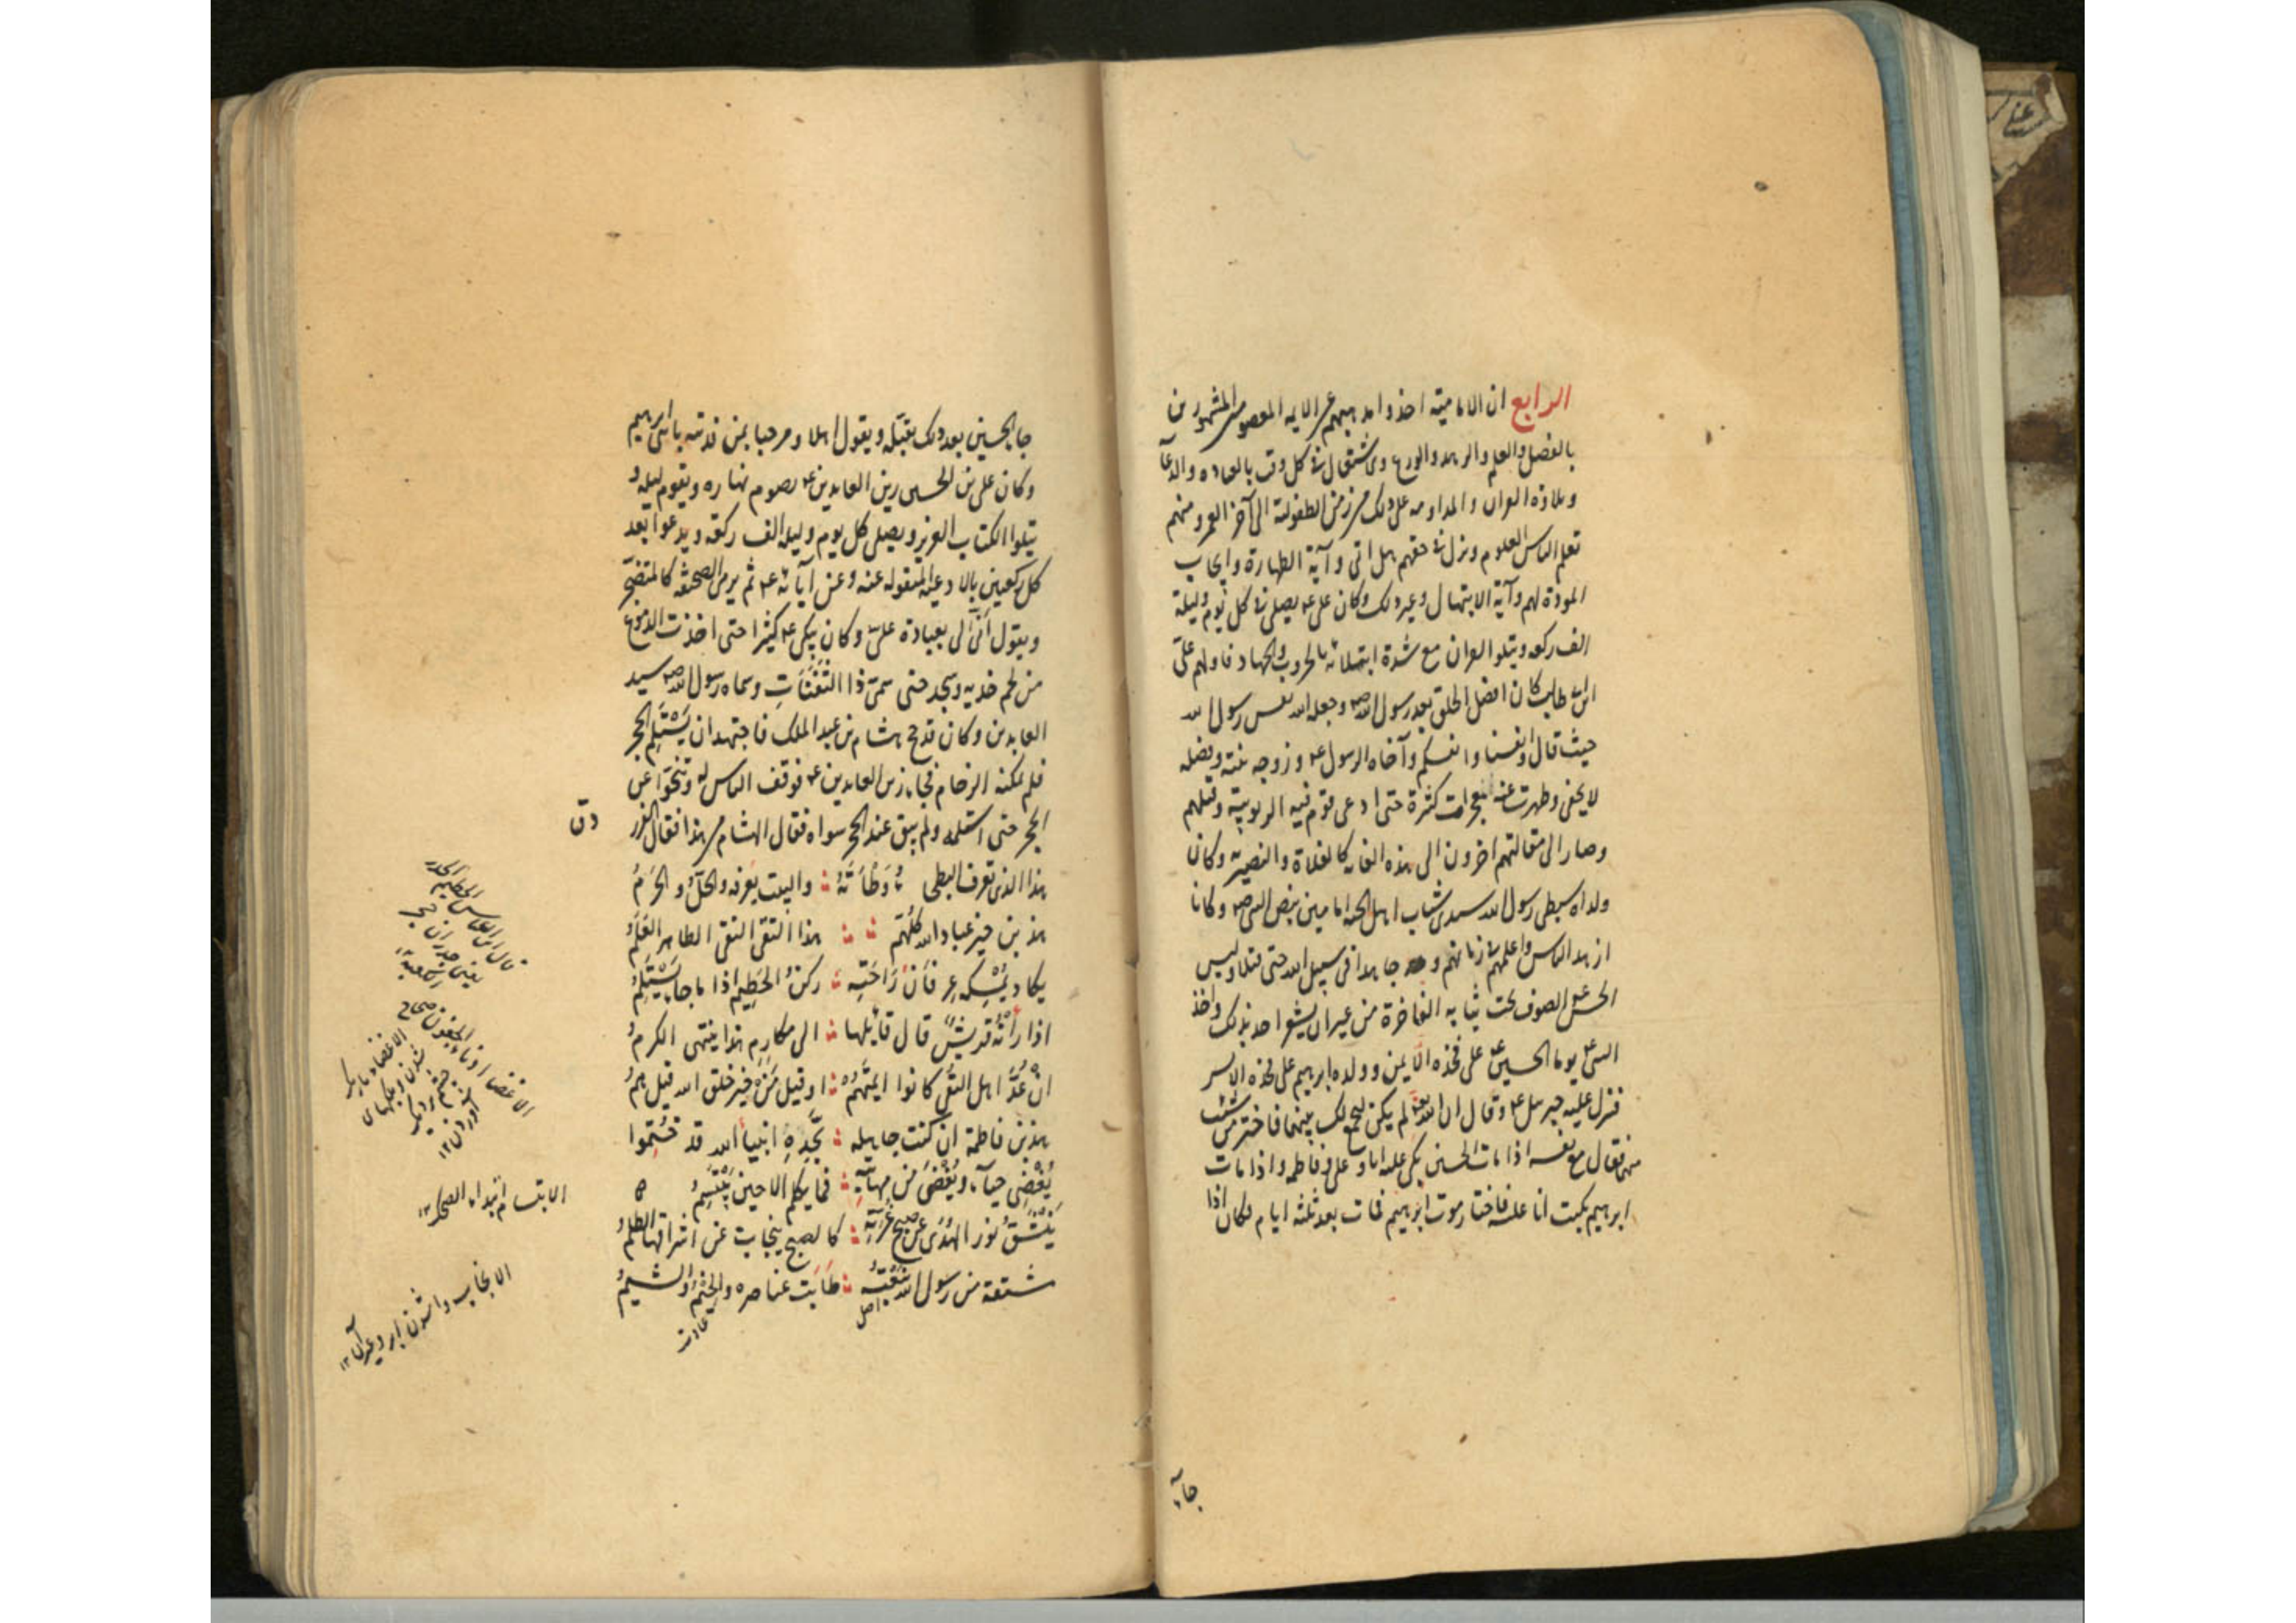 الرابع ان الامامية اخذوا مذهبهم عن الايمه المعصومين المشهورين
بالفضل والعلم والزهد والورع والاشتغال فى كل وقت بالعباده والدعآ
وتلاوة القران والمداومه على ذلك من زمن الطفولته الى آخر العمر ومنهم
تعلم الناس العلوم ونزل فى حقهم هل اتى وآية الطهارة وايجاب
المودة لهم وآية الابتهال وغير ذلك وكان على ع يصلى فى كل يوم وليلة
الف ركعه ويتلو القران مع شدة ابتلائه بالحروب والجهاد فاولهم على
ابن ابى طالب كان افضل الخلق بعد رسول الله ص وجعله الله نفس رسول الله
حيث قال وانفسنا وانفسكم وآخاه الرسول ع وزوجه بنته وفضله
لا يخفى وظهرت عنه معجزات كثيرة حتى ادعى قوم فيه الربوبيّة وقتلهم
وصار الى مقالتهم اخرون الى هذه الغايه كالغلاة والنصيريه وكان
ولداه سبطى رسول الله سيدى شباب اهل الجنه امامين بنص النبى ص وكانا
ازهد الناس واعلمهم فى زمانهم وجاهدا فى سبيل الله حتى قتلا ولبس
الحسن ع الصوف تحت ثيابه الفاخرة من غير ان يشعر احد بذلك واخذ
النبى ع يوما الحسين ع على فخذه الايمن وولده ابرهيم على فخذه الايسر
فنزل عليه جبرئيل ع وقال ان الله تع لم يكن ليجمع لك بينهما فاختر من شئت
منهما فقال مع نفسه اذا مات الحسين بكى عليه انا وعلى وفاطمه واذا مات
ابرهيم بكيت انا عليه فاختار موت ابرهيم فمات بعد ثلثه ايام فكان اذا
جآء
جا الحسين بعد ذلك يقبّله ويقول اهلا ومرحبا بمن فديته بابنى ابرهيم
وكان على بن الحسين زين العابدين ع يصوم نهاره ويقوم ليله و
يتلوا الكتاب العزيز ويصلى كل يوم وليله الف ركعه ويدعوا بعد
كل ركعتين بالادعيه المنقوله عنه وعن آبائه ع ثم يرمى الصحيفه كالمتضجر
ويقول انّى لى بعبادة علىّ وكان يبكى ع كثيرا حتى اخذت الدموع
من لحم خديه وسجد حتى سمى ذا الثفنات وسماه رسول الله ص سيد
العابدين وكان قد حج هشام بن عبد الملك فاجتهد ان يستلم الحجر
فلم يمكنه الزحام فجاء زين العابدين ع فوقف الناس له وتنحّوا عن
الحجر حتى استلمه ولم يبق عند الحجر سواه فقال الهشام من هذا فقال الفرز
دق
هذا الذى تعرف البطحاء وطأته والبيت يعرفه والحلّ والحرم
هذ بن خير عباد الله كلهم هذا التقى النقى الطاهر العلم
يكاد يمسكه عرفان راحته ركن الحطيم اذا ما جاء يستلم
اذا رأته قريش قال قآئلها الى مكارم هذا ينتهى الكرم
ان عُدّ اهل التقى كانوا ايمتهم او قيل من خير خلق الله قيل هم
هذ بن فاطمة ان كنت جاهله بجدّه انبيآ الله قد ختموا
يغضى حيآء ويغضى من مهابته فما يكلم الا حين يبتسم
ينشق نور الهدى عن صبح غرته كالصبح ينجاب عن اشراقها الظلم
مشتقة من رسول الله نبعته طابت عناصره والخيم والشيم
اصل
عادت
الابتسام ابتداء الضحك ١٢
الانجاب واشدن ابر وغير آن ١٢